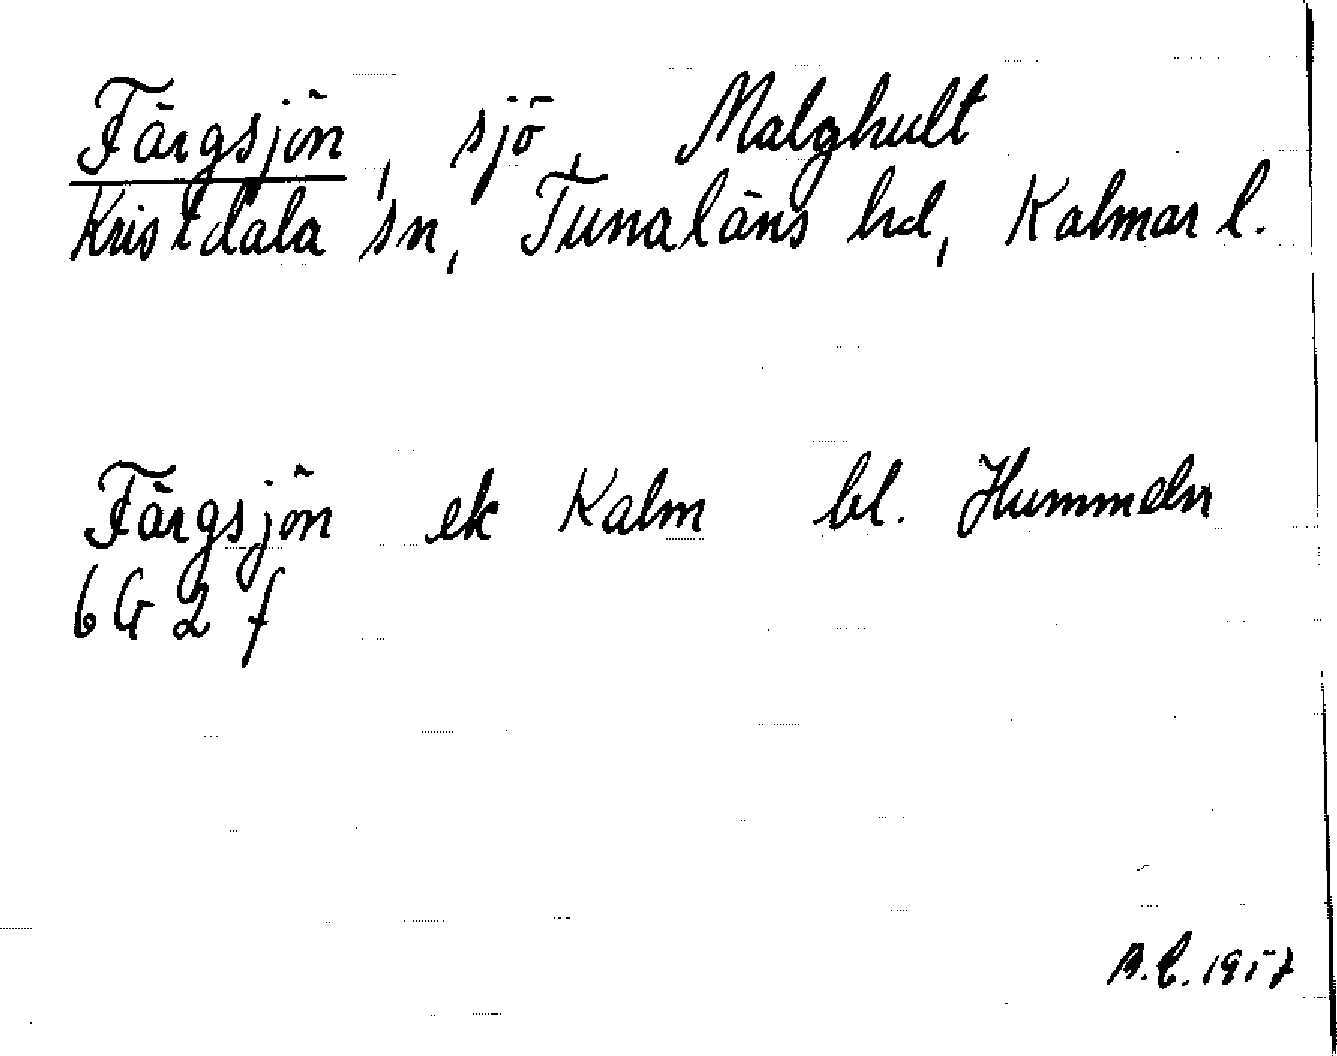 Färgsjön, sjö, Malghult
Kristdala sn, Tunaläns hd, Kalmar l.
Färgsjön ek Kalm bl. Hummeln
6G 2 f
B.E. 1957